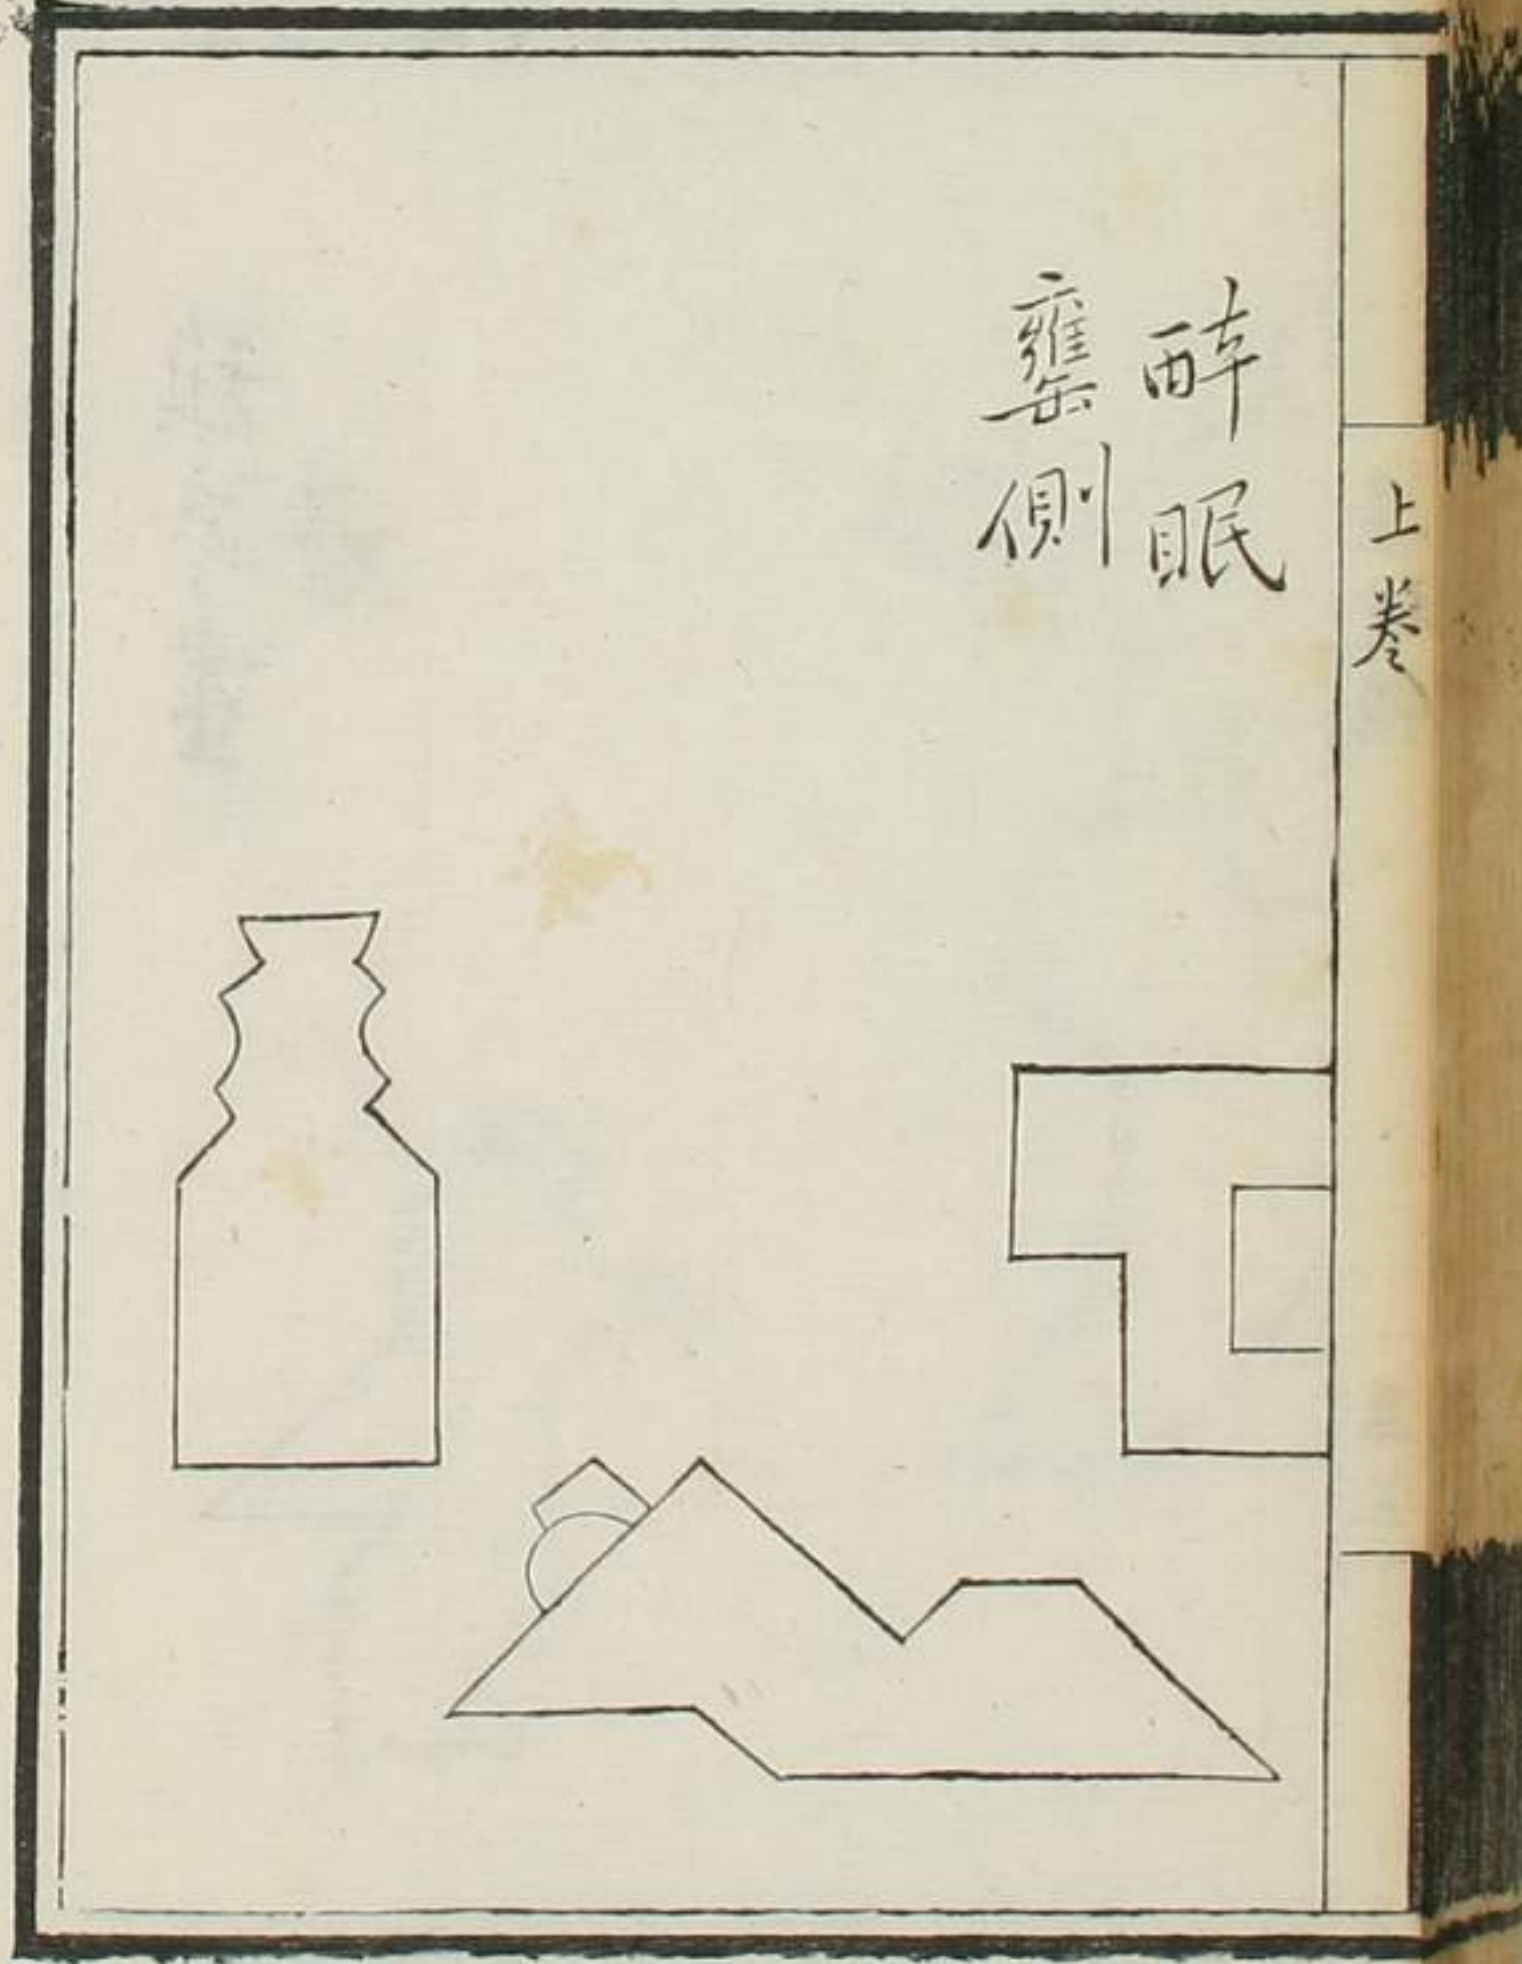 上卷
醉眠
甕側